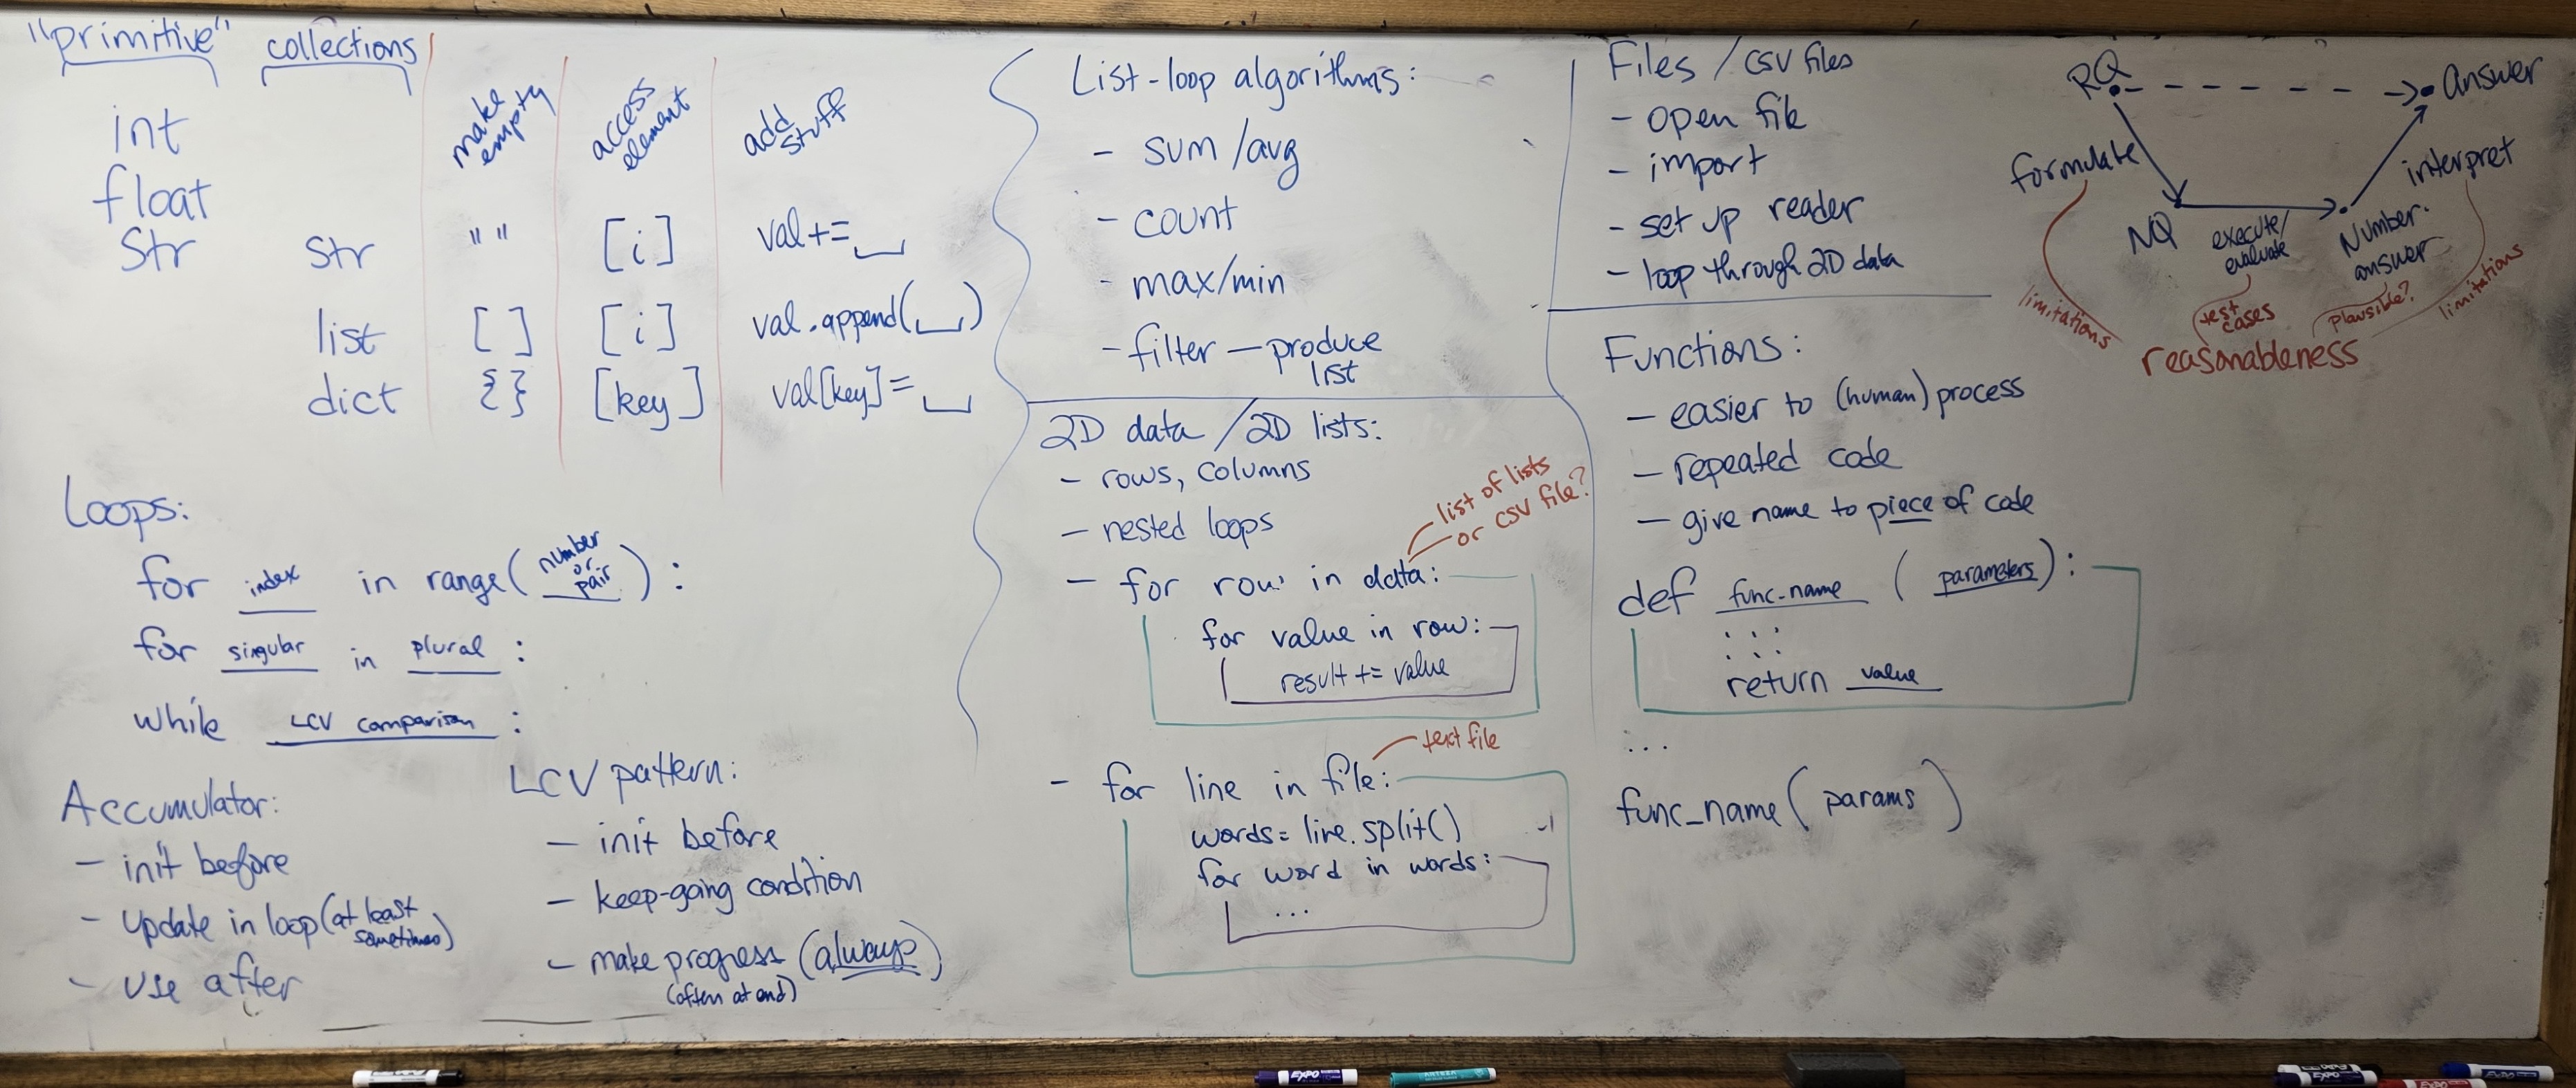 "primitive" collections
make empty
access element
add stuff
int
float
str str " " [i] val +=
list [ ] [i] val.append( )
dict { } [key] val[key] =
Loops:
for index in range(number or pair):
for singular in plural:
while LCV comparison:
Accumulator:
- init before
- update in loop (at least sometimes)
- use after
LCV pattern:
- init before
- keep-going condition
- make progress (always)
(often at end)
List-loop algorithms:
- sum/avg
- count
- max/min
- filter — produce
list
2D data / 2D lists:
- rows, columns
- nested loops
list of lists
or csv file?
- for row in data:
for value in row:
result += value
text file
- for line in file:
words = line.split()
for word in words:
...
Files / csv files
- open file
- import
- set up reader
- loop through 2D data
Functions:
- easier to (human) process
- repeated code
- give name to piece of code
def func_name (parameters):
return value
...
func_name(params)
RQ
Answer
formulate
interpret
NQ
execute/
evaluate
Number.
answer
limitations
test
cases
plausible?
limitations
reasonableness
EXPO
EXPO